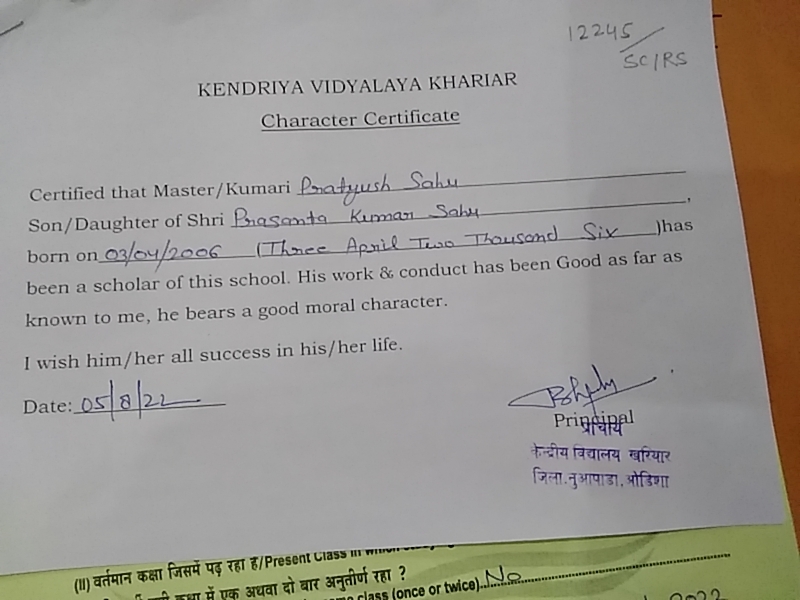 12245/
SC/RS
KENDRIYA VIDYALAYA KHARIAR
Character Certificate
Certified that Master/Kumari Pratyush Sahu
Son/Daughter of Shri Prasanta Kumar Sahu,
born on 03/04/2006 (Three April Two Thousand Six )has
been a scholar of this school. His work & conduct has been Good as far as
known to me, he bears a good moral character.
I wish him/her all success in his/her life.
Date: 05/8/22
Principal
प्राचार्य
केन्द्रीय विद्यालय खरियार
जिला.नुआपाडा.ओडिशा
(II) वर्तमान कक्षा जिसमें पढ़ रहा है/Present Class in which
कक्षा में एक अथवा दो बार अनुतीर्ण रहा ?
class (once or twice) No
2022